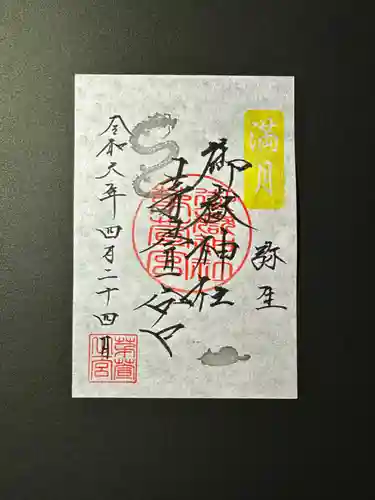 満月
弥生
御嶽神社
茅萱宮
令和六年 四月二十四日